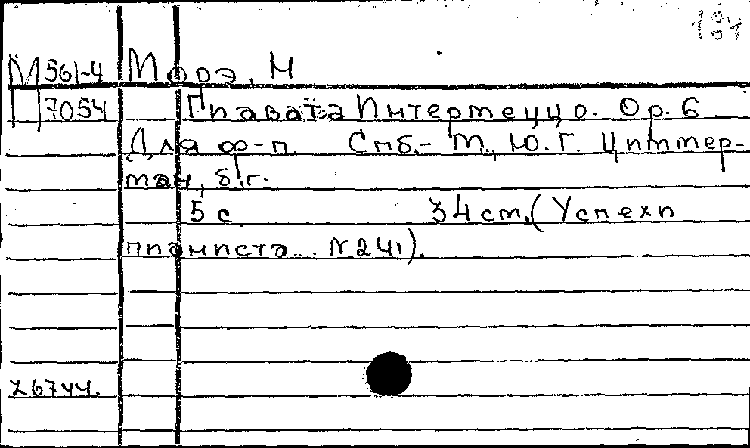 194
М 561-4 Морэ, М
П 7054 Гпавата Интермеццо. Ор. 6
Для ф-п. Спб.- М., Ю.Г. Циммер-
ман, б.г.
5 с. 34 см. (Успехи
пианиста... N 241).
26744.